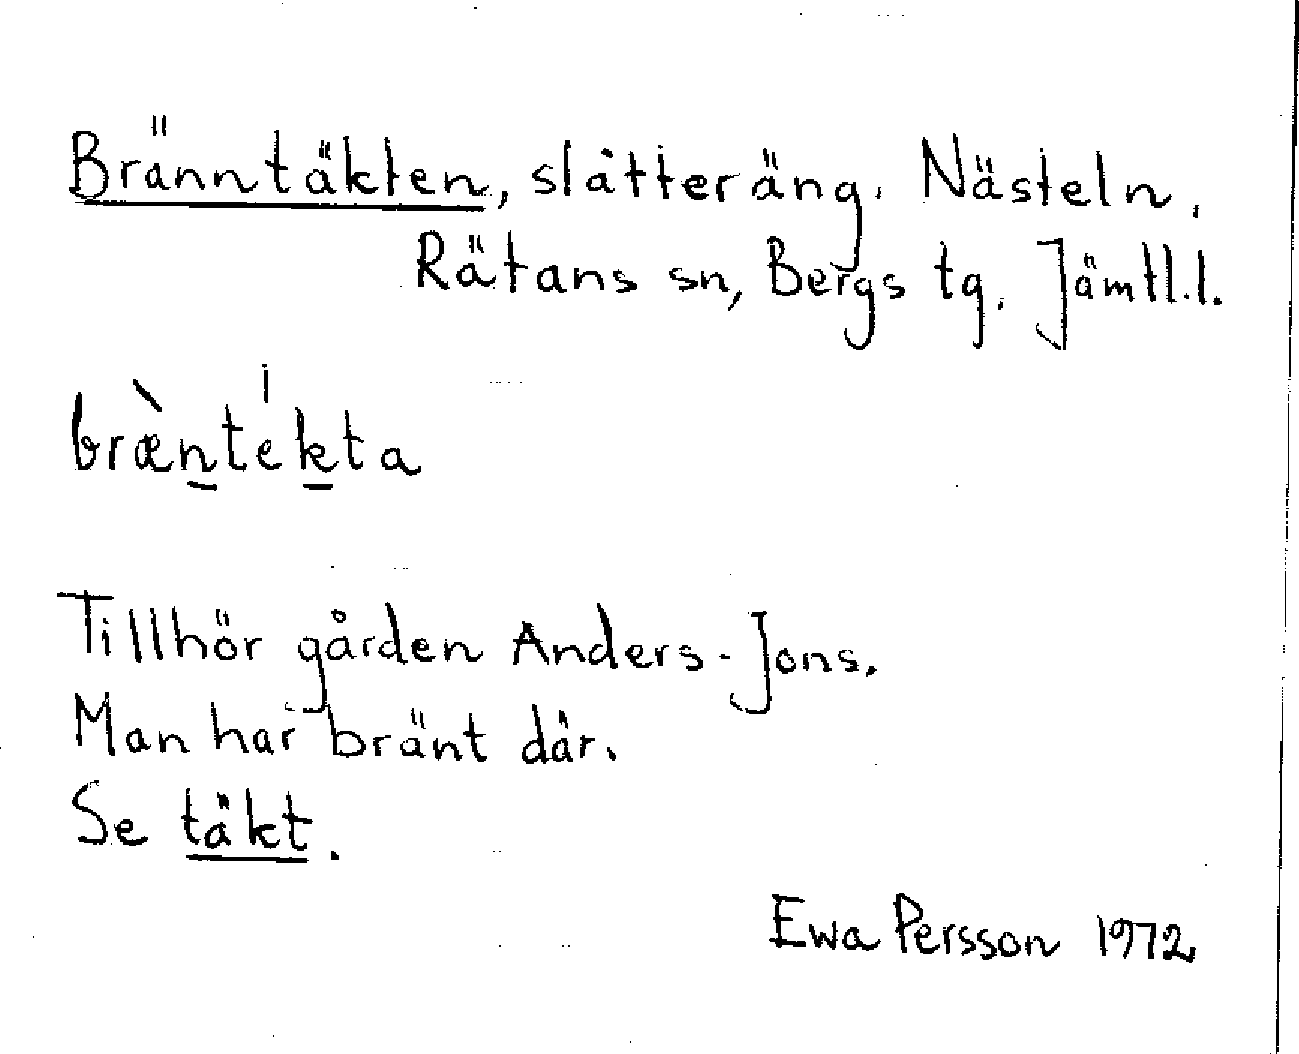 Bränntäkten, slåtteräng. Nästeln,
Rätans sn, Bergs tg. Jämtl.l.
bræ̀nték̲ta
Tillhör gården Anders-Jons.
Man har bränt där.
Se täkt.
Ewa Persson 1972